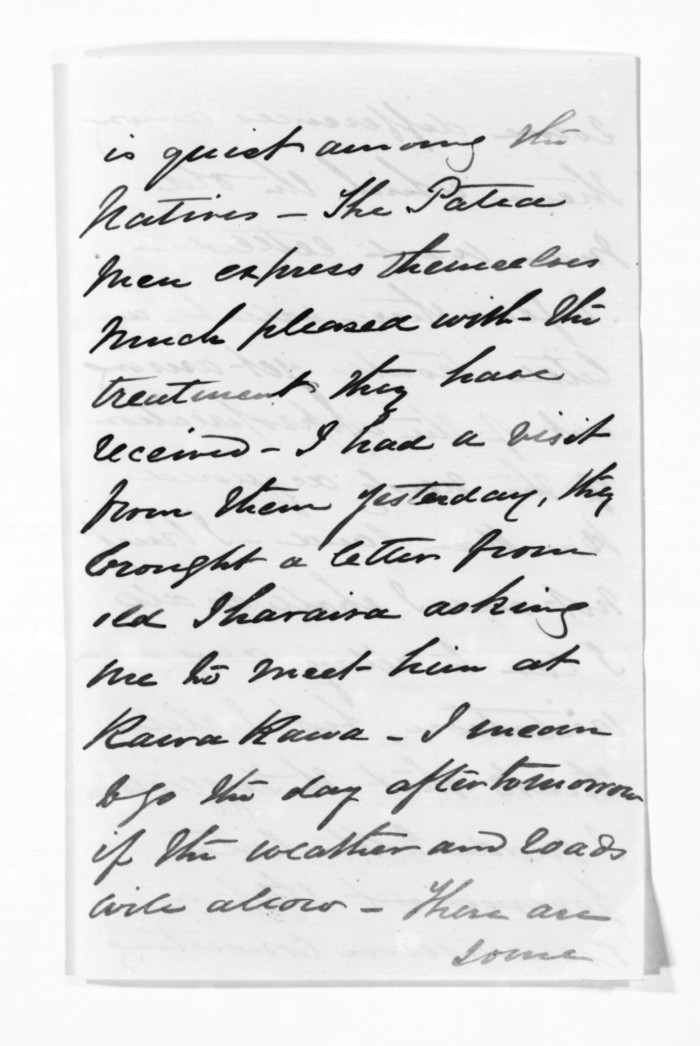 is quiet among the
Natives – The Patea
Men express themselves
much pleased with – the
treatment they have
received – I had a visit
from them yesterday, they
brought a letter from
old Iharaira asking
me to meet him at
Kawa Kawa – I mean
to go the day after tomorrow
if the weather and roads
will allow – There are
some